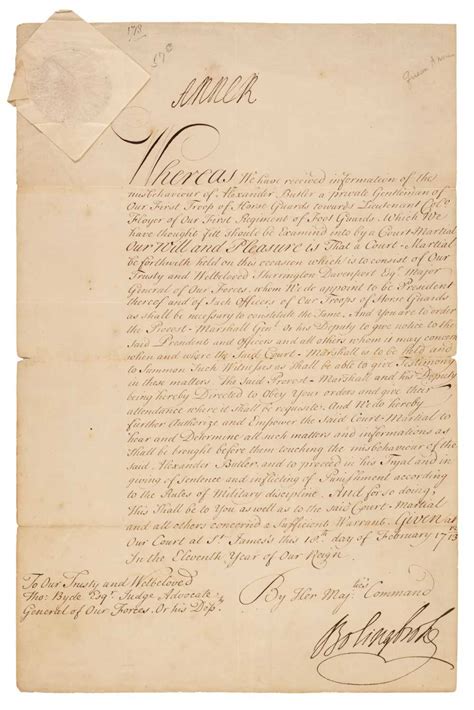 178
Anne R
Whereas We have received information of the
misbehaviour of Alexander Butler a private Gentleman of
Our First Troop of Horse Guards towards Lieutenant Coll.
Floyer of Our First Regiment of Foot Guards, Which We
have thought fitt should be Examined into by a Court-Martial
Our Will and Pleasure is That a Court-Martial
be forthwith held on this occasion which is to consist of Our
Trusty and Welbeloved Sherrington Davenport Esqr. Major
General of Our Forces, whom We do appoint to be President
thereof and of Such Officers of Our Troops of Horse Guards
as shall be necessary to constitute the Same. And You are to order
the Provost-Marshall Genl. Or his Deputy to give notice to the
Said President and Officers and all others whom it may concern
when and where the Said Court-Marshall is to be held and
to Summon Such Witnesses as Shall be able to give Testimony
in these matters, The Said Provost-Marshall and his Deputy
being hereby Directed to Obey Your orders and give their
attendance where it Shall be requisite. And We do hereby
further Authorize and Empower the Said Court-Martial to
hear and Determine all such matters and informations as
Shall be brought before them touching the misbehaviour of the
Said Alexander Butler and to proceed in his Tryal and in
giving of Sentence and inflicting of Punishment according
to the Rules of Military discipline. And for so doing,
This Shall be to You as well as to the Said Court-Martial
and all others concerned a Sufficient Warrant. Given at
Our Court at St. James's this 18th. day of February 1713
In the Eleventh Year of Our Reign.
To Our Trusty and Welbeloved
Tho: Byde Esqr. Judge Advocate
General of Our Forces. Or his Depty.
By Her Majties Command
Bolingbroke